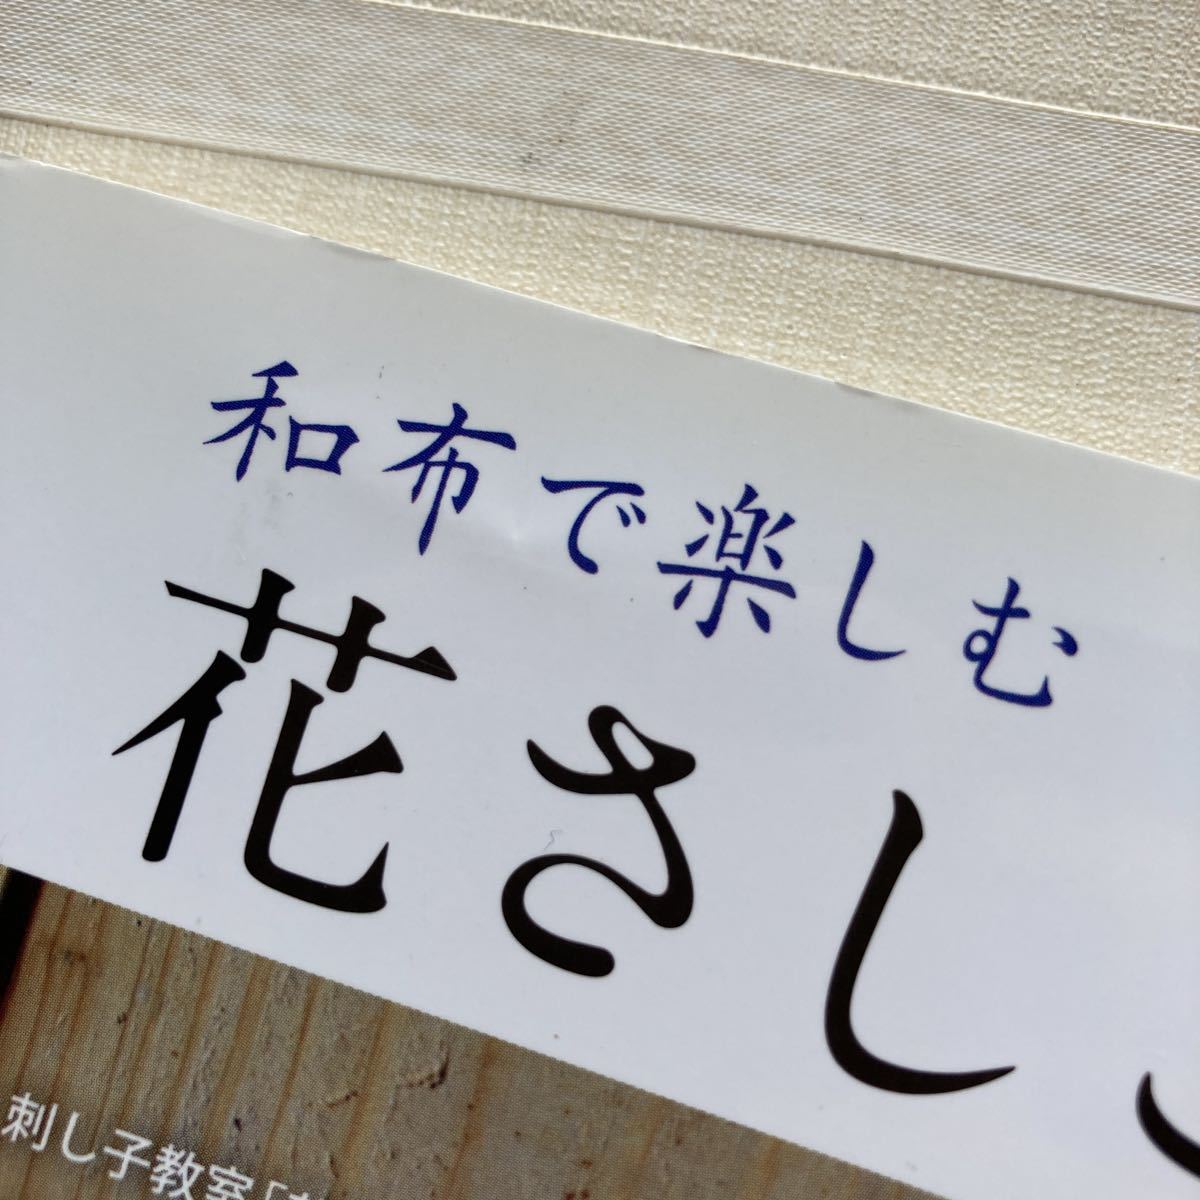 和布で楽しむ
花さし
刺し子教室「